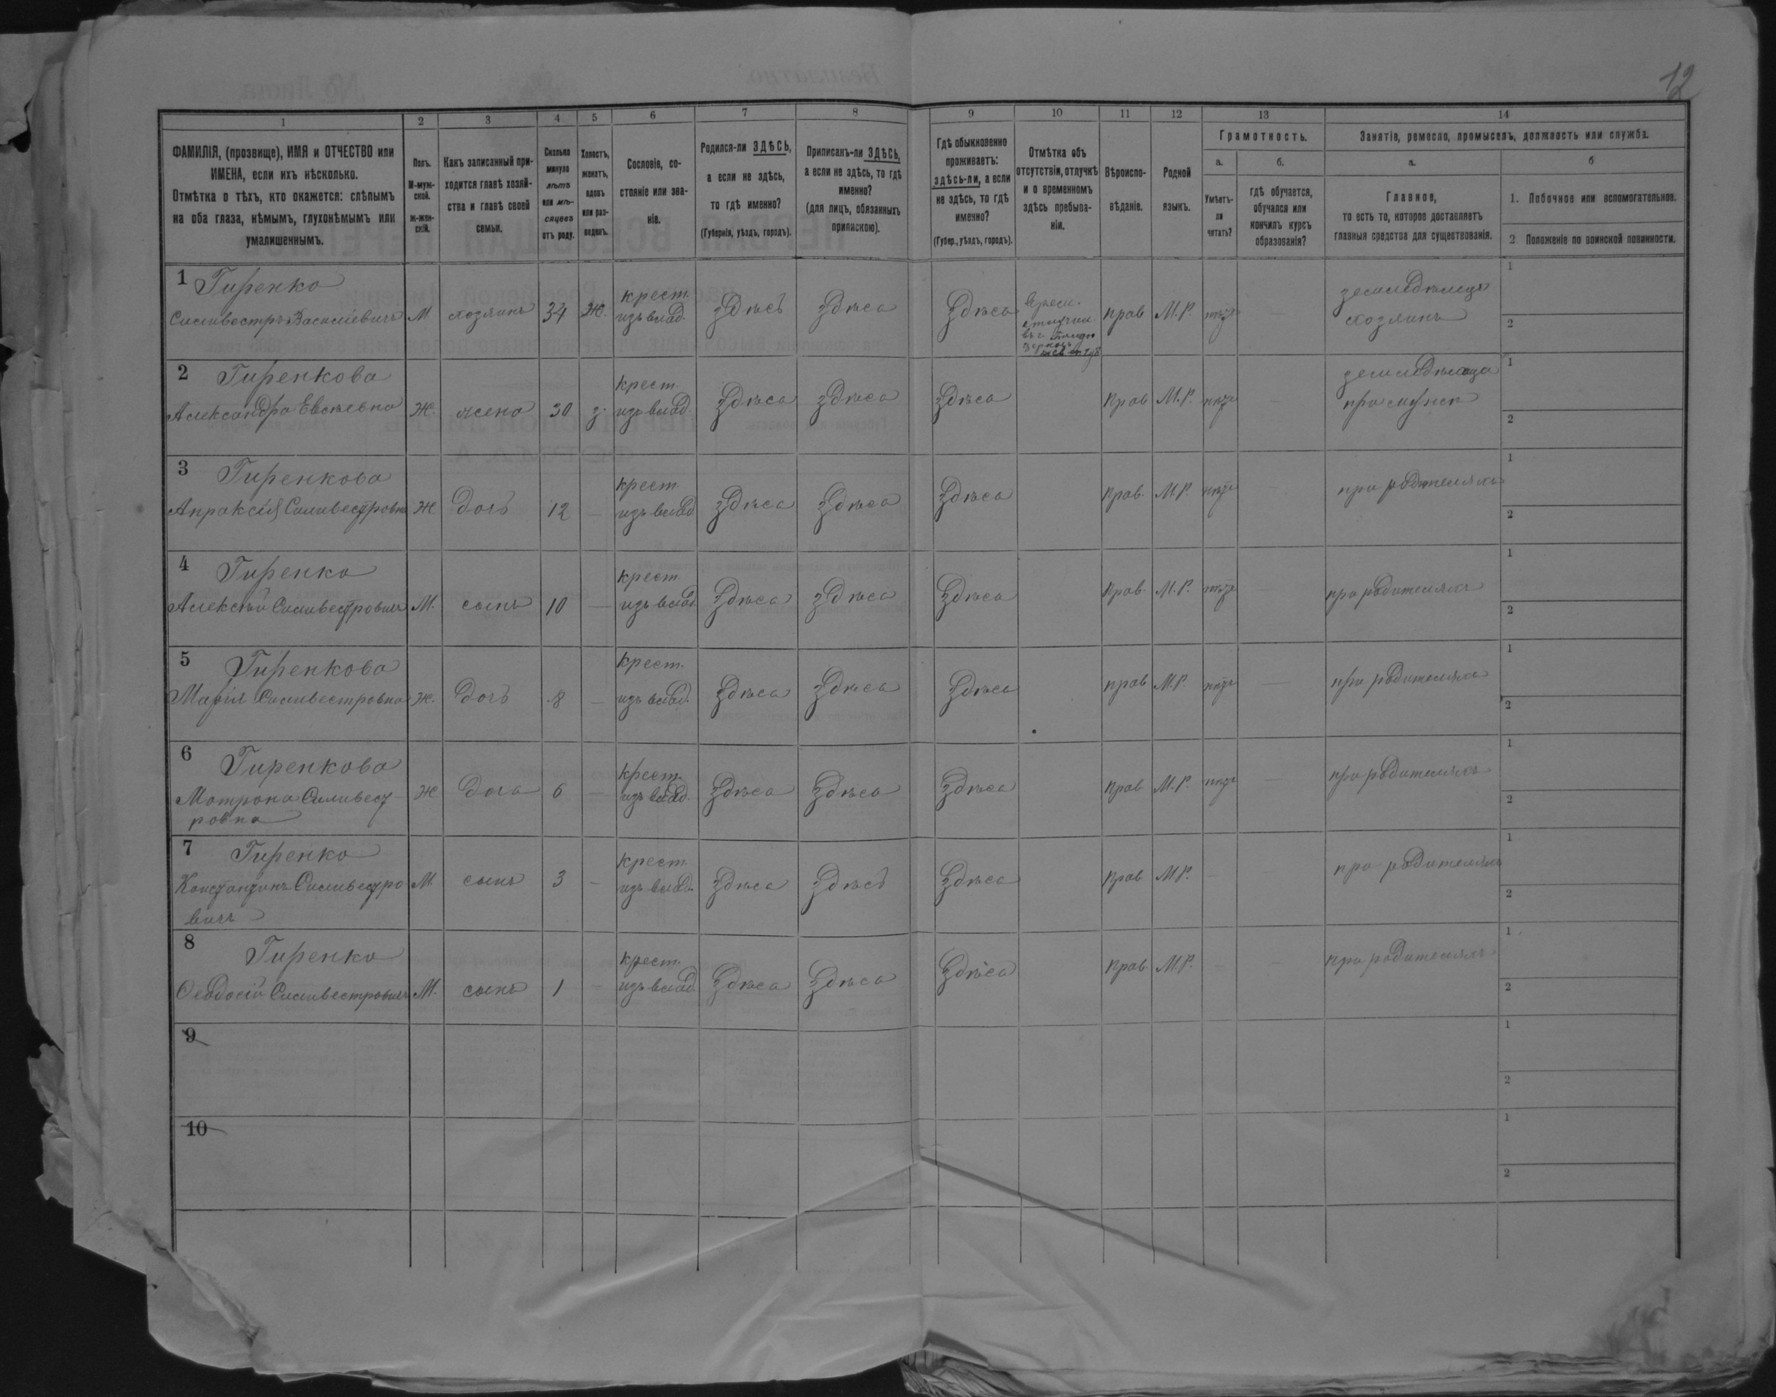 12
1 2 3 4 5 6 7 8 9 10 11 12 13 14
ФАМИЛІЯ, (прозвище), ИМЯ и ОТЧЕСТВО или
ИМЕНА, если ихъ нѣсколько.
Отмѣтка о тѣхъ, кто окажется: слѣпымъ
на оба глаза, нѣмымъ, глухонѣмымъ или
умалишеннымъ.
Полъ.
М-муж-
ской.
ж-жен-
скій.
Какъ записанный при-
ходится главѣ хозяй-
ства и главѣ своей
семьи.
Сколько
минуло
лѣтъ
или мѣ-
сяцевъ
отъ роду.
Холостъ,
женатъ,
вдовъ
или раз-
веденъ.
Сословіе, со-
стояніе или зва-
ніе.
Родился-ли ЗДѢСЬ,
а если не здѣсь,
то гдѣ именно?
(Губернія, уѣздъ, городъ).
Приписанъ-ли ЗДѢСЬ,
а если не здѣсь, то гдѣ
именно?
(для лицъ, обязанныхъ
припискою).
Гдѣ обыкновенно
проживаетъ:
здѣсь-ли, а если
не здѣсь, то гдѣ
именно?
(Губер., уѣздъ, городъ).
Отмѣтка объ
отсутствіи, отлучкѣ
и о временномъ
здѣсь пребыва-
ніи.
Вѣроиспо-
вѣданіе.
Родной
языкъ.
Грамотность.
а.
Умѣетъ-
ли
читать?
б.
гдѣ обучается,
обучался или
кончилъ курсъ
образованія?
Занятія, ремесло, промыселъ, должность или служба.
а.
Главное,
то есть то, которое доставляетъ
главныя средства для существованія.
б
1. Побочное или вспомогательное.
2 Положеніе по воинской повинности.
1 Гиренко
Силивестръ Василіевичъ М хозяинъ 34 Ж. крест. изъ влад. Здѣсь Здѣсь Здѣсь прав М.Р. нѣтъ — земледѣлецъ хозяинъ 1 2
2 Гиренкова
Александра Ж. жена 30 з. крест. изъ влад. Здѣсь здѣсь Здѣсь прав М.Р. нѣтъ — земледѣлица при мужѣ 1 2
3 Гиренкова
Апраксія Силивестровна Ж дочь 12 — крест изъ влад Здѣсь Здѣсь Здѣсь прав М.Р. нѣтъ — при родителяхъ 1 2
4 Гиренко
Алексѣй Силивестровичъ М. сынъ 10 — крест изъ влад. Здѣсь здѣсь Здѣсь прав. М.Р. нѣтъ — при родителяхъ 1 2
5 Гиренкова
Марія Силивестровна Ж. дочь 8 — крест. изъ влад. Здѣсь Здѣсь Здѣсь прав М.Р. нѣтъ — при родителяхъ 1 2
6 Гиренкова
Мотрона Силивест-
ровна Ж дочь 6 — крест. изъ влад. Здѣсь Здѣсь Здѣсь прав М.Р. нѣтъ — при родителяхъ 1 2
7 Гиренко
Константинъ Силивестро
вичъ М сынъ 3 — крест изъ влад. Здѣсь Здѣсь Здѣсь прав М.Р. — при родителяхъ 1 2
8 Гиренко
Ѳеодосій Силивестровичъ М. сынъ 1 — крест. изъ влад Здѣсь Здѣсь Здѣсь прав М.Р. — — при родителяхъ 1 2
9 1 2
10 1 2